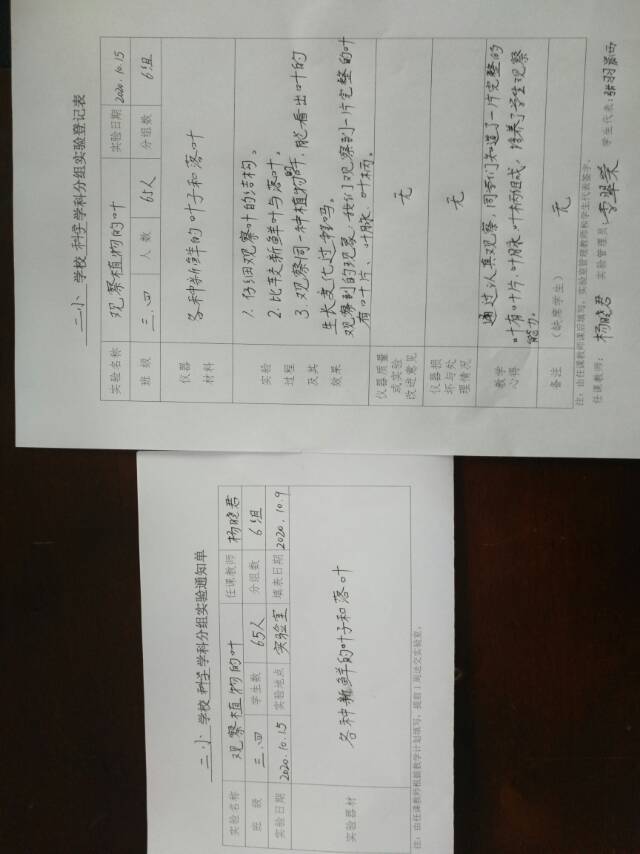 二小 学校 科学 学科分组实验登记表
实验名称 观察植物的叶 实验日期 2020.10.15
班级 三.四 人数 65人 分组数 6组
仪器材料 各种新鲜的叶子和落叶
实验过程及其效果
1. 仔细观察叶的结构。
2. 比较新鲜叶与落叶。
3. 观察同一种植物叶，能看出叶的
生长变化过程吗。
观察到的现象：我们观察到一片完整的叶
有叶片、叶脉、叶柄。
仪器质量或实验改进意见 无
仪器损坏与处理情况 无
教学心得
通过认真观察，同学们知道了一片完整的
叶有叶片.叶脉.叶柄组成，培养了学生观察
能力。
备注 （缺席学生） 无
注：由任课教师课后填写，实验室管理教师和学生代表签字。
任课教师：杨晓君 实验管理员 学生代表：
二.小 学校 科学 学科分组实验通知单
实验名称 观察植物的叶 任课教师 杨晓君
班级 三.四 学生数 65人 分组数 6组
实验日期 2020.10.15 实验地点 实验室 填表日期 2020.10.9
实验器材 各种新鲜的叶子和落叶
注：由任课教师根据教学计划填写，提前1周送交实验室。